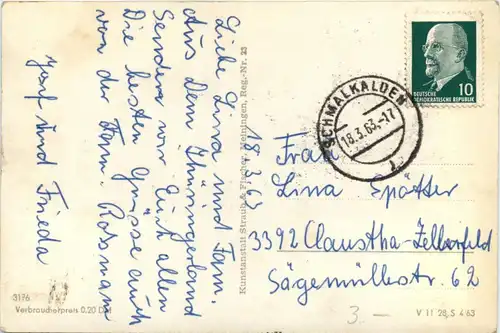 Liebe Lina und Fam.
Aus dem Thüringerland
Senden wir Euch allen
Die besten Grüsse auch
von der Fam. Rossmann
Josef und Frieda
18.3.63
3176
Verbraucherpreis 0.20 DM
Kunstanstalt Straub & Fischer, Meiningen, Reg.-Nr. 23
DEUTSCHE
DEMOKRATISCHE REPUBLIK
10
SCHMALKALDEN
18.3.63.-17
Frau
Lina Spötter
3392 Claustha-Zellerfeld
Sägemüllestr. 62
3 –
V 11 28, S 4 63